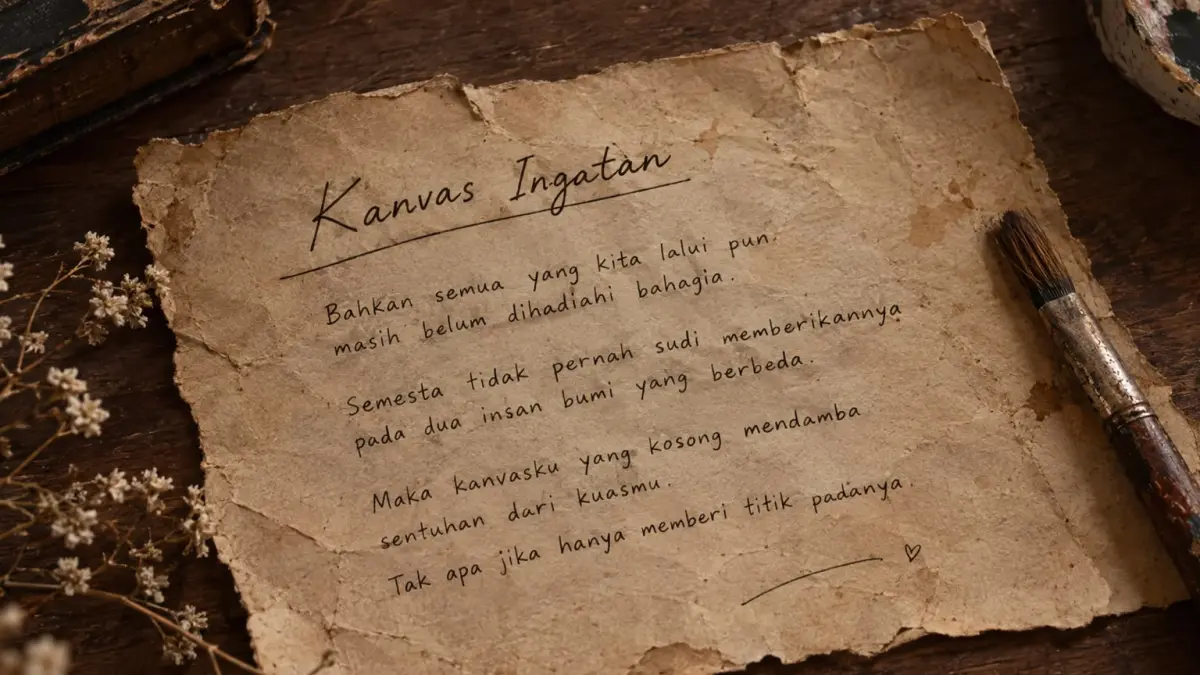 Kanvas Ingatan
Bahkan semua yang kita lalui pun
masih belum dihadiahi bahagia.
Semesta tidak pernah sudi memberikannya
pada dua insan bumi yang berbeda.
Maka kanvasku yang kosong mendamba
sentuhan dari kuasmu.
Tak apa jika hanya memberi titik padanya.